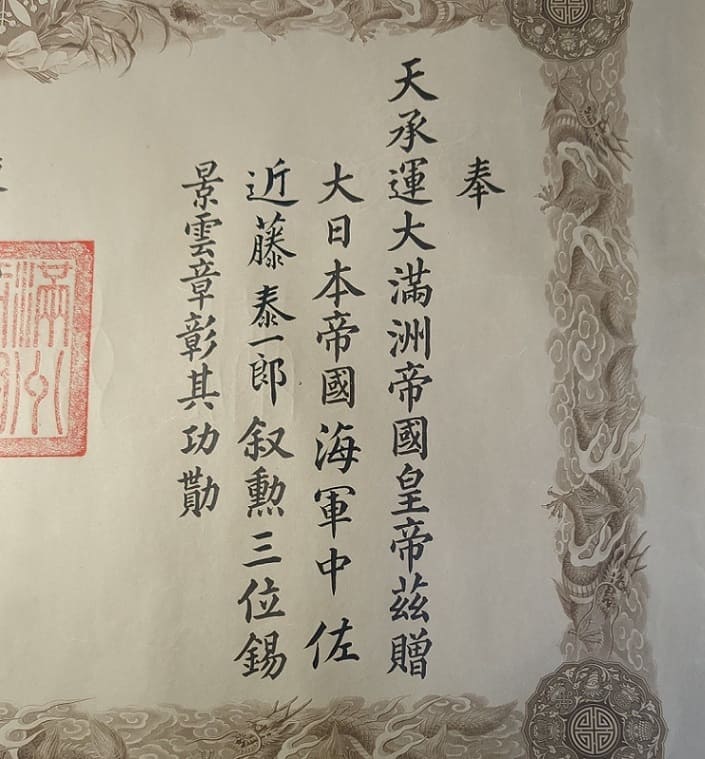 奉
天承運大滿洲帝國皇帝茲贈
大日本帝國海軍中佐
近藤泰一郎叙勳三位錫
景雲章彰其功勩
滿